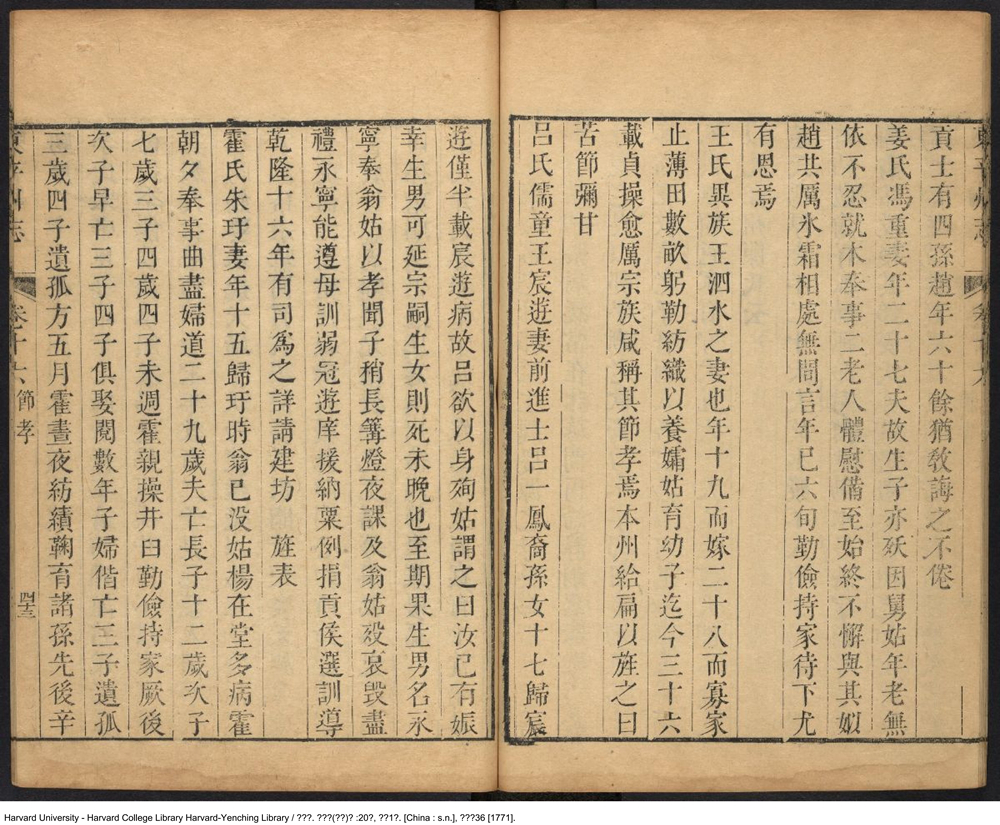 東平州志
卷十六
貢士有四孫趙年六十餘猶敎誨之不倦
姜氏馮重妻年二十七夫故生子亦殀因舅姑年老無
依不忍就木奉事二老人體慰備至始終不懈與其姒
趙共厲氷霜相處無間言年已六旬勤儉持家待下尤
有恩焉
王氏異族王泗水之妻也年十九而嫁二十八而寡家
止薄田數畝躬勤紡織以養孀姑育幼子迄今三十六
載貞操愈厲宗族咸稱其節孝焉本州給扁以旌之曰
苦節彌甘
呂氏儒童王宸遊妻前進士呂一鳳裔孫女十七歸宸
遊僅半載宸遊病故呂欲以身殉姑謂之曰汝已有娠
幸生男可延宗嗣生女則死未晚也至期果生男名永
寧奉翁姑以孝聞子稍長篝燈夜課及翁姑歿哀毀盡
禮永寧能遵母訓弱冠遊庠援納粟例捐貢侯選訓導
乾隆十六年有司爲之詳請建坊 旌表
霍氏朱玗妻年十五歸玗時翁已没姑楊在堂多病霍
朝夕奉事曲盡婦道二十九歲夫亡長子十二歲次子
七歲三子四歲四子未週霍親操井臼勤儉持家厥後
次子早亡三子四子俱娶閱數年子婦偕亡三子遺孤
三歲四子遺孤方五月霍晝夜紡績鞠育諸孫先後辛
東平州志
卷十六
節孝
四十三
Harvard University - Harvard College Library Harvard-Yenching Library / ???. ???(??)? :20?, ??1?. [China : s.n.], ???36 [1771].